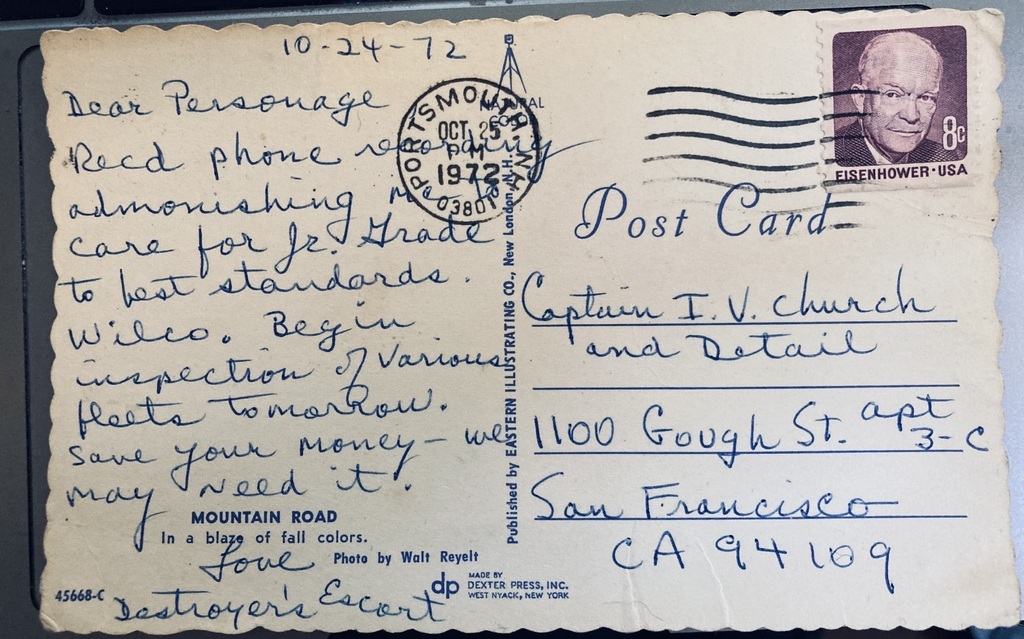 10-24-72
Dear Personage
Recd phone recording
admonishing me to
care for Jr. Grade
to best standards.
Wilco. Begin
inspection of various
fleets tomorrow.
Save your money – we
may need it!
MOUNTAIN ROAD
In a blaze of fall colors.
Love
Photo by Walt Reyelt
Destroyer's Escort
45668-C
dp
MADE BY
DEXTER PRESS, INC.
WEST NYACK, NEW YORK
NATURAL
Published by EASTERN ILLUSTRATING CO., New London, N.H.
PORTSMOUTH, N.H.
OCT 25
PM
1972
03801
8c
EISENHOWER · USA
Post Card
Captain I. V. Church
and Detail
1100 Gough St. apt
3-C
San Francisco
CA 94109